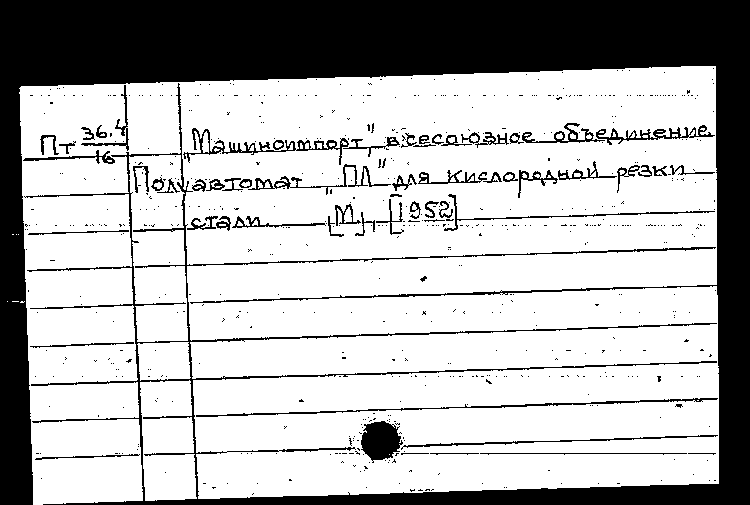 Пт 36.4/16 "Машиноимпорт", всесоюзное объединение.
Полуавтомат "ПЛ" для кислородной резки
стали. [М], [1952]